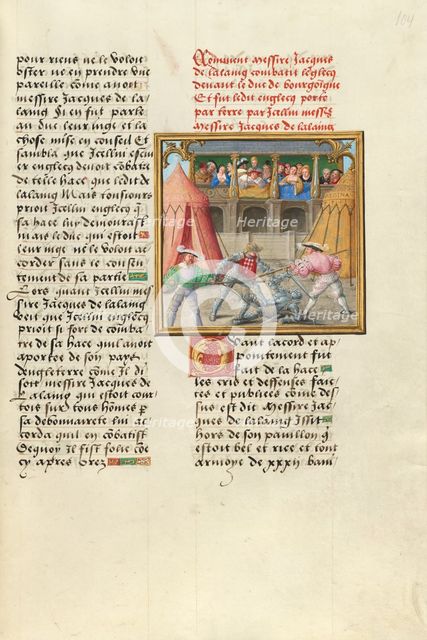 104
pour riens ne le voloit
oster ne en prendre une
pareille come avoit
messire Jacques de la-
laing Si en fut parle
au duc leur iuge et la
chose mise en conseil Et
sambla que Icellui escui
er englecq devoit combatre
de telle hace que ledit de
lalaing Mais tousiours
pria Icellui englecq q̄
sa hace luy demourast
mais le duc qui estoit
leur iuge ne le volut ac
corder sans le consen
tement de sa partie
Lors quant Icellui mes
sire Jacques de lalaing
veit que Icellui englecq
prioit si fort de comba
tre de sa hace quil avoit
aportee de son pays
dengleterre come Il di
soit messire Jacques de
Lalaing qui estoit cour
tois sur tous homes p
sa debonnairete lui ac
corda quil en combatist
De quoy Il fist folie coe
cy apres orez
Comment messire Jacques
de lalaing combatit lenglecq
devant le duc de bourgoigne
Et fut ledit englecq porte
par terre par Icellui messe
messire Jacques de lalaing
Quant lacord et ap
pointement fut
fait de la hace
les crid et deffenses fait
es et publiees come des
sus est dit Messire Jac
ques de lalaing Issit
hors de son pavillon q̄
estoit bel et rice et tout
armoye de xxxii bani
Heritage
Heritage
Heritage
Heritage